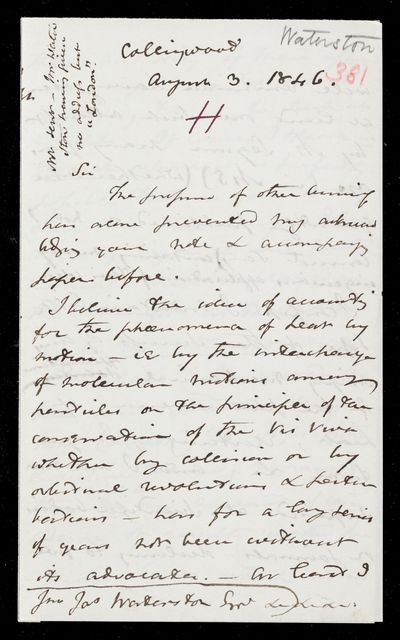 Waterston
381
Collingwood
August 3. 1846.
H
Not sent - Mr Water
ston having given
no address but
"London"
Sir
The pressure of other
has alone prevented my acknow
ledging your note & accompanying
paper before.
I believe the idea of accounting
for the phœnomena of heat by
motion - ie by the interchange
of molecular motions among
particles on the principle of the
conservation of the Vis Viva
whether by collision or by
orbitual revolutions & pertur
bations - has for a long series
of years not been without
its advocates. - At least I
Jno Jas Waterston Esqr